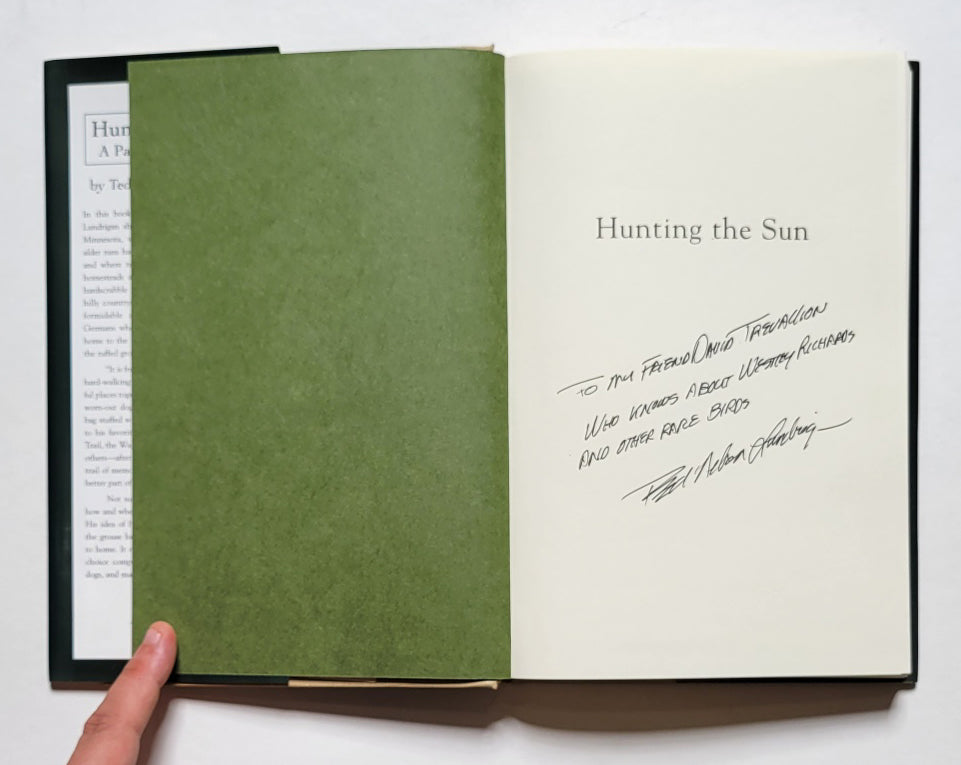 Hun
A Pa
by Ted
In this book
Landrigan sh
Minnesota, w
alder runs ha
and where n
homesteads
hardscrabble
hilly country
formidable
Germans wh
home to the
the ruffed gro
"It is fr
hard-walking
ful places rop
worn-out dog
bag stuffed w
to his favorit
Trail, the Wa
others—after
trail of memo
better part of
Not su
how and whe
His idea of h
the grouse ha
to home. It
choice comp
dogs, and ma
Hunting the Sun
TO MY FRIEND DAVID TREVALLION
WHO KNOWS ABOUT WESTLEY RICHARDS
AND OTHER RARE BIRDS
Ted Nelson Lundrigan